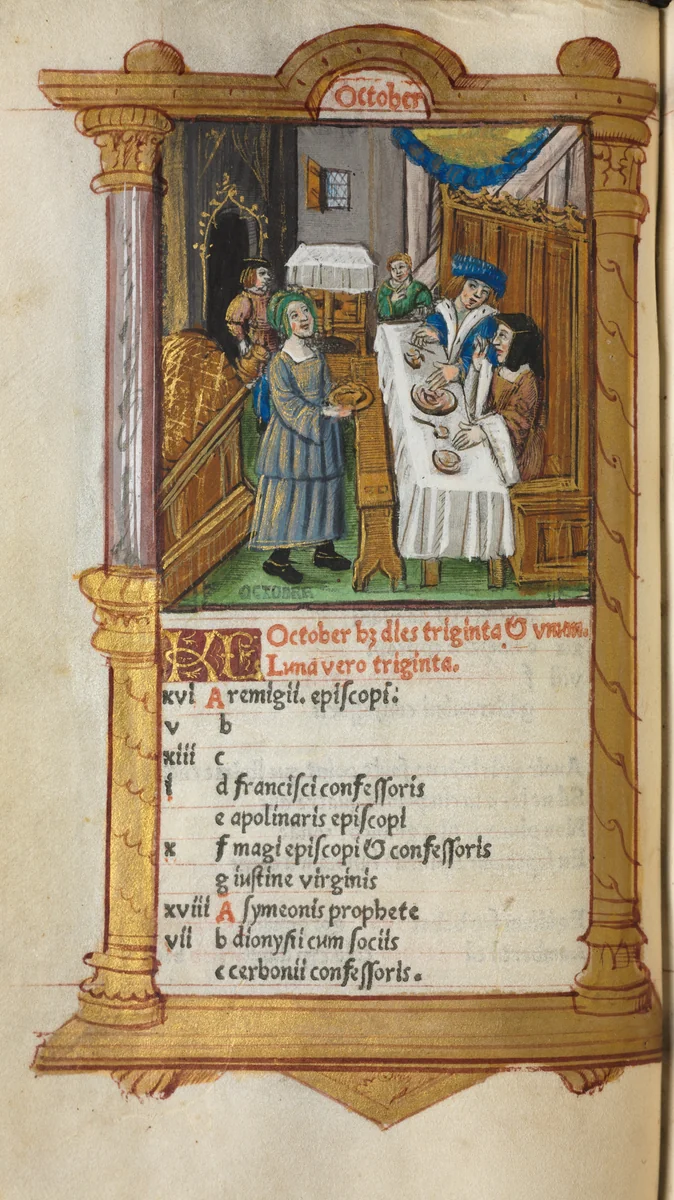 October
OCTOBER
KL October hʒ dies triginta & vnum.
Luna vero triginta.
xvi A remigii. epiſcopi:
v b
xiii c
i d franciſci confeſſoris
e apolinaris epiſcopi
x f magi epiſcopi & confeſſoris
g iuſtine virginis
xviii A ſymeonis prophete
vii b dionyſii cum ſociis
c cerbonii confeſſoris.